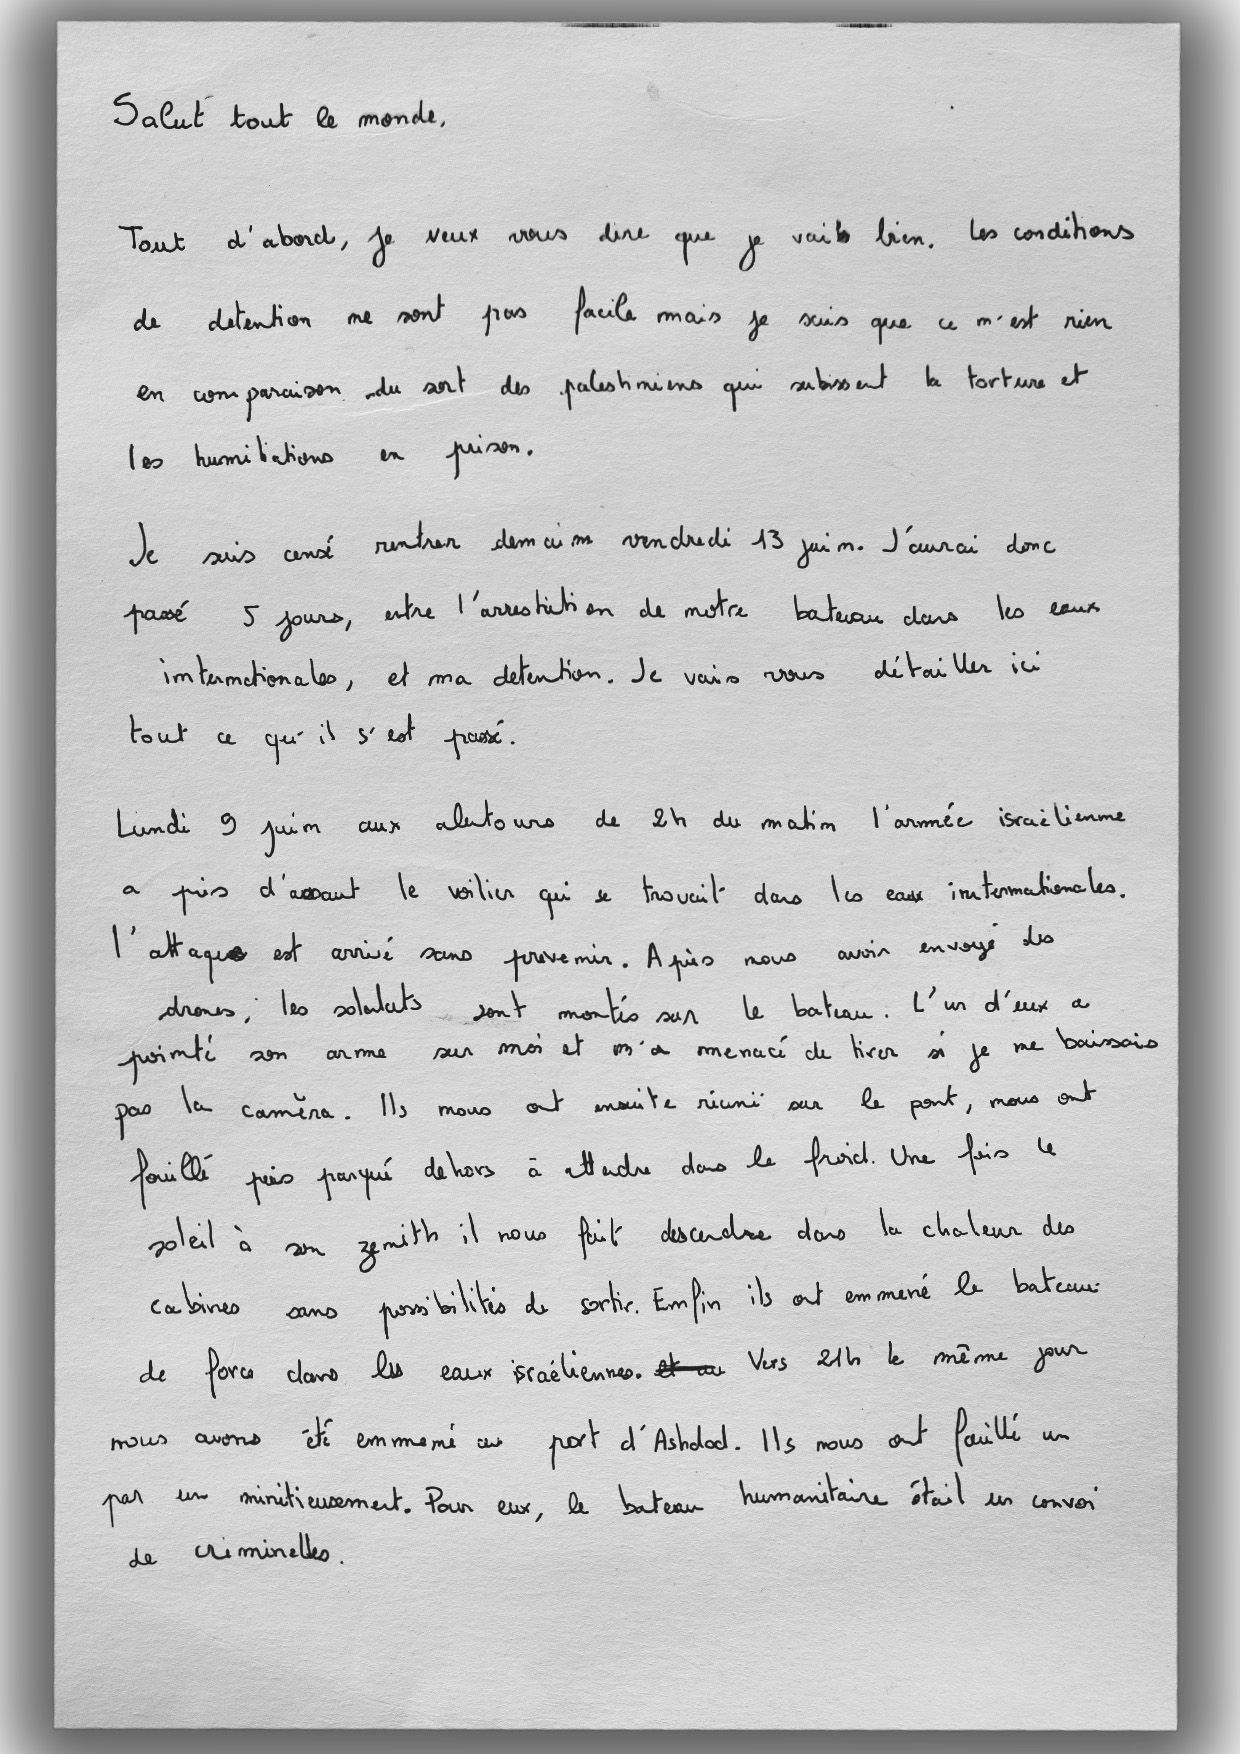 Salut tout le monde.
Tout d'abord, je veux vous dire que je vais bien. Les conditions
de detention ne sont pas facile mais je sais que ce n'est rien
en comparaison du sort des palestiniens qui subissent la torture et
les humiliations en prison.
Je suis censé rentrer demain vendredi 13 juin. J'aurai donc
passé 5 jours, entre l'arrestation de notre bateau dans les eaux
internationales, et ma detention. Je vais vous détailler ici
tout ce qu'il s'est passé.
Lundi 9 juin aux alentours de 2h du matin l'armée israélienne
a pris d'assaut le voilier qui se trouvait dans les eaux internationales.
l'attaque est arrivé sans prevenir. Après nous avoir envoyé des
drones, les soldats sont montés sur le bateau. L'un d'eux a
pointé son arme sur moi et m'a menacé de tirer si je ne baissais
pas la caméra. Ils nous ont ensuite réuni sur le pont, nous ont
fouillé puis parqué dehors à attendre dans le froid. Une fois le
soleil à son zenith il nous fait descendre dans la chaleur des
cabines sans possibilités de sortir. Enfin ils ont emmené le bateau
de force dans les eaux israéliennes. Vers 21h le même jour
nous avons été emmené au port d'Ashdod. Ils nous ont fouillé un
par un minitieusement. Pour eux, le bateau humanitaire était un convoi
de criminelles.